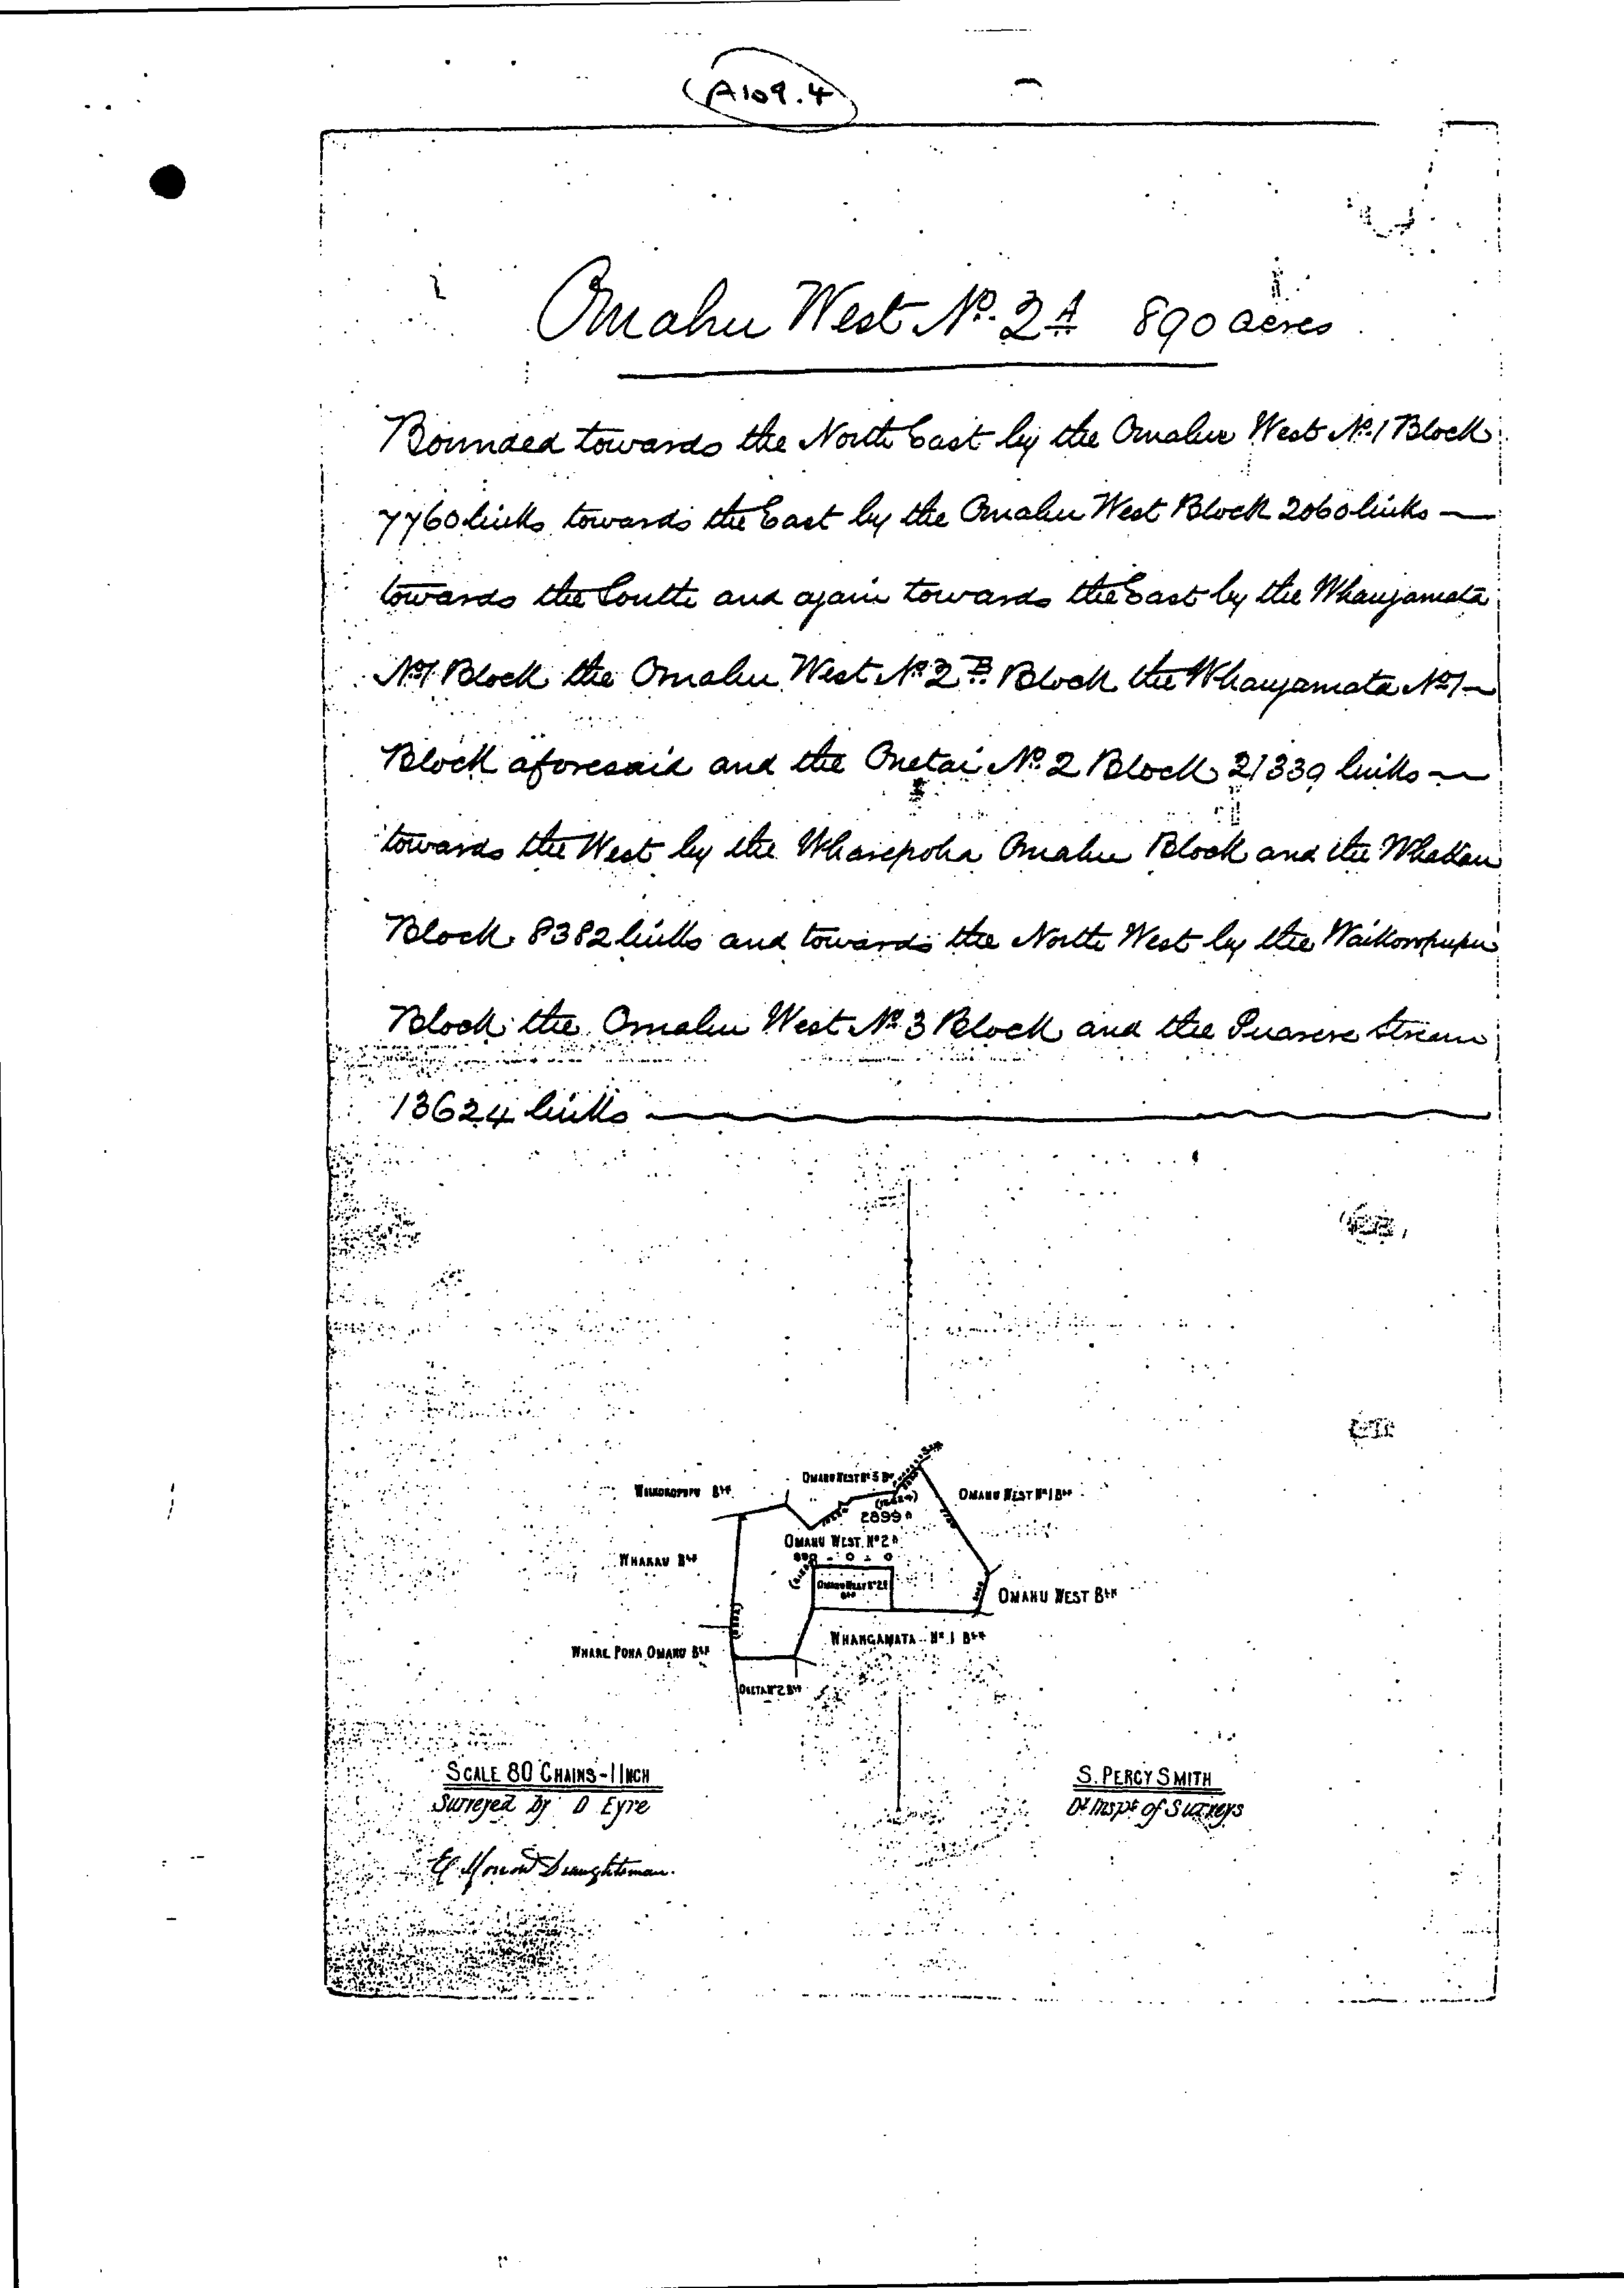 A109.4
Omahu West No. 2A 890 acres
Bounded towards the North East by the Omahu West No. 1 Block
7760 links towards the East by the Omahu West Block 2060 links —
towards the South and again towards the East by the Whangamata
No 1 Block the Omahu West No 2B Block the Whangamata No 1 —
Block aforesaid and the Onetai No. 2 Block 21339 links —
towards the West by the Wharepoha Omahu Block and the Whakau
Block 8382 links and towards the North West by the Waikoropupu
Block the Omahu West No. 3 Block and the Puarere Stream
13624 links
OMAHU WEST No 3 Blk
WAIKOROPUPU Blk
OMAHU WEST No 1 Blk
(13624)
2899A
OMAHU WEST No 2A
890 - 0 - 0
WHAKAU Blk
OMAHU WEST No 2B
Blk
OMAHU WEST Blk
WHANGAMATA No 1 Blk
WHARE POHA OMAHU Blk
ONETAI No 2 Blk
SCALE 80 CHAINS - 1 INCH
Surveyed by D Eyre
Draughtsman.
S. PERCY SMITH
Dt Inspr of Surveys